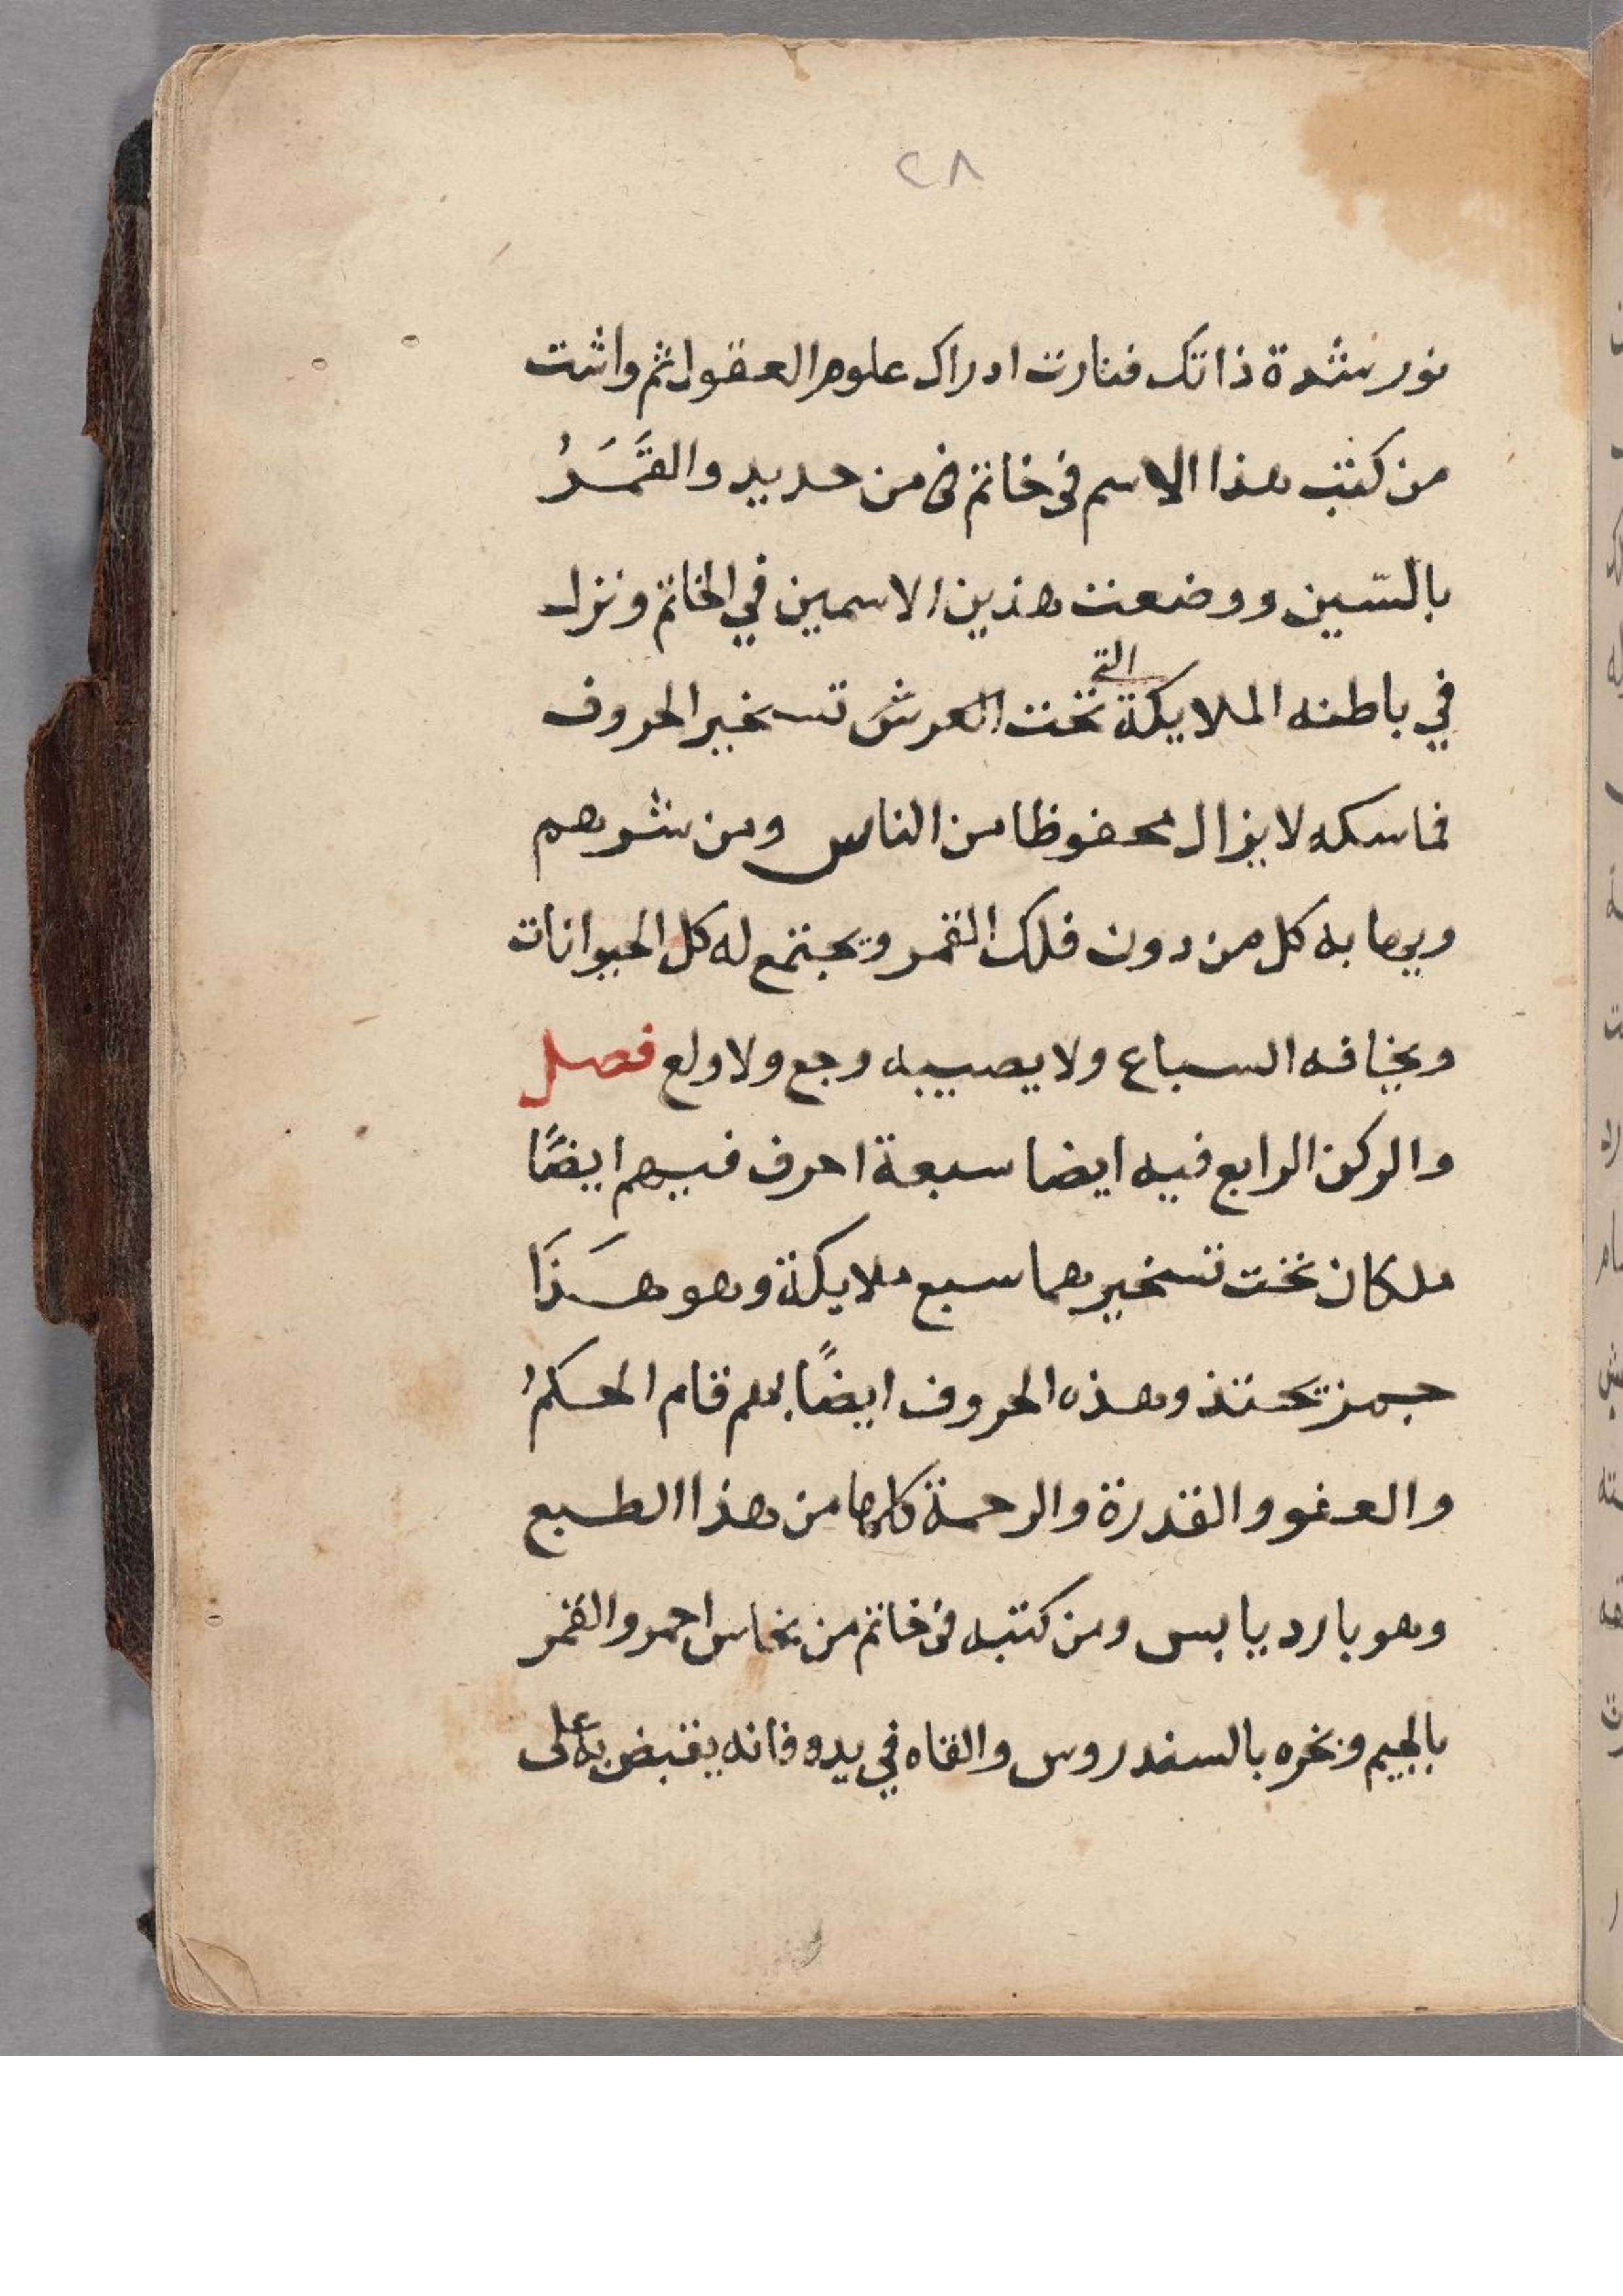 ٢٨
نور شدة ذاتك فنارت ادراك علوم العقول ثم واثبت
من كتب هذا الاسم في خاتم في من حديد والقَمَرُ
بالسّين ووضعت هذين الاسمين في الخاتم ونزل
في باطنه الملايكة التي تحت العرش تسخير الحروف
فماسكه لا يزال محفوظا من الناس ومن شرهم
ويهابه كل من دون فلك القمر ويجتمع له كل الحيوانات
ويخافه السباع ولا يصيبه وجع ولا ولع فصل
والركن الرابع فيه ايضا سبعة احرف فيهم ايضًا
ملكان تحت تسخيرهما سبع ملايكة وهو هَذَا
وهذه الحروف ايضًا بهم قام الحكمُ
والعفو والقدرة والرحمة كلها من هذا الطبع
وهو بارد يابس ومن كتبه في خاتم من نحاس احمر والقمر
بالجيم وبخره بالسندروس والقاه في يده فانه يقبض به على